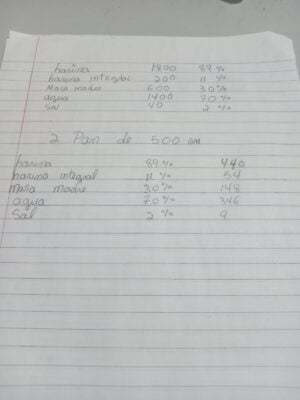 harina 1800 89 %
harina integral 200 11 %
Masa madre 600 30 %
agua 1400 70 %
Sal 40 2 %
2 Pan de 500 GM
harina 89 % 440
harina integral 11 % 54
masa madre 30 % 148
agua 70 % 346
Sal 2 % 9